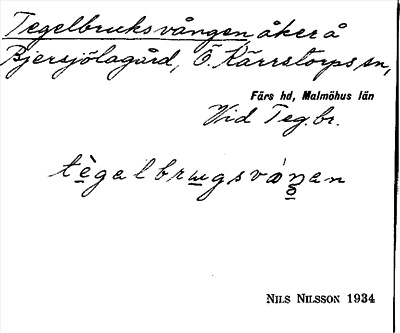 Tegelbruksvången åker å
Bjersjölagård, Ö. Kärrstorps sn,
Färs hd, Malmöhus län
Vid Teg.br.
tègalbrɯgsvåŋ̥an
NILS NILSSON 1934